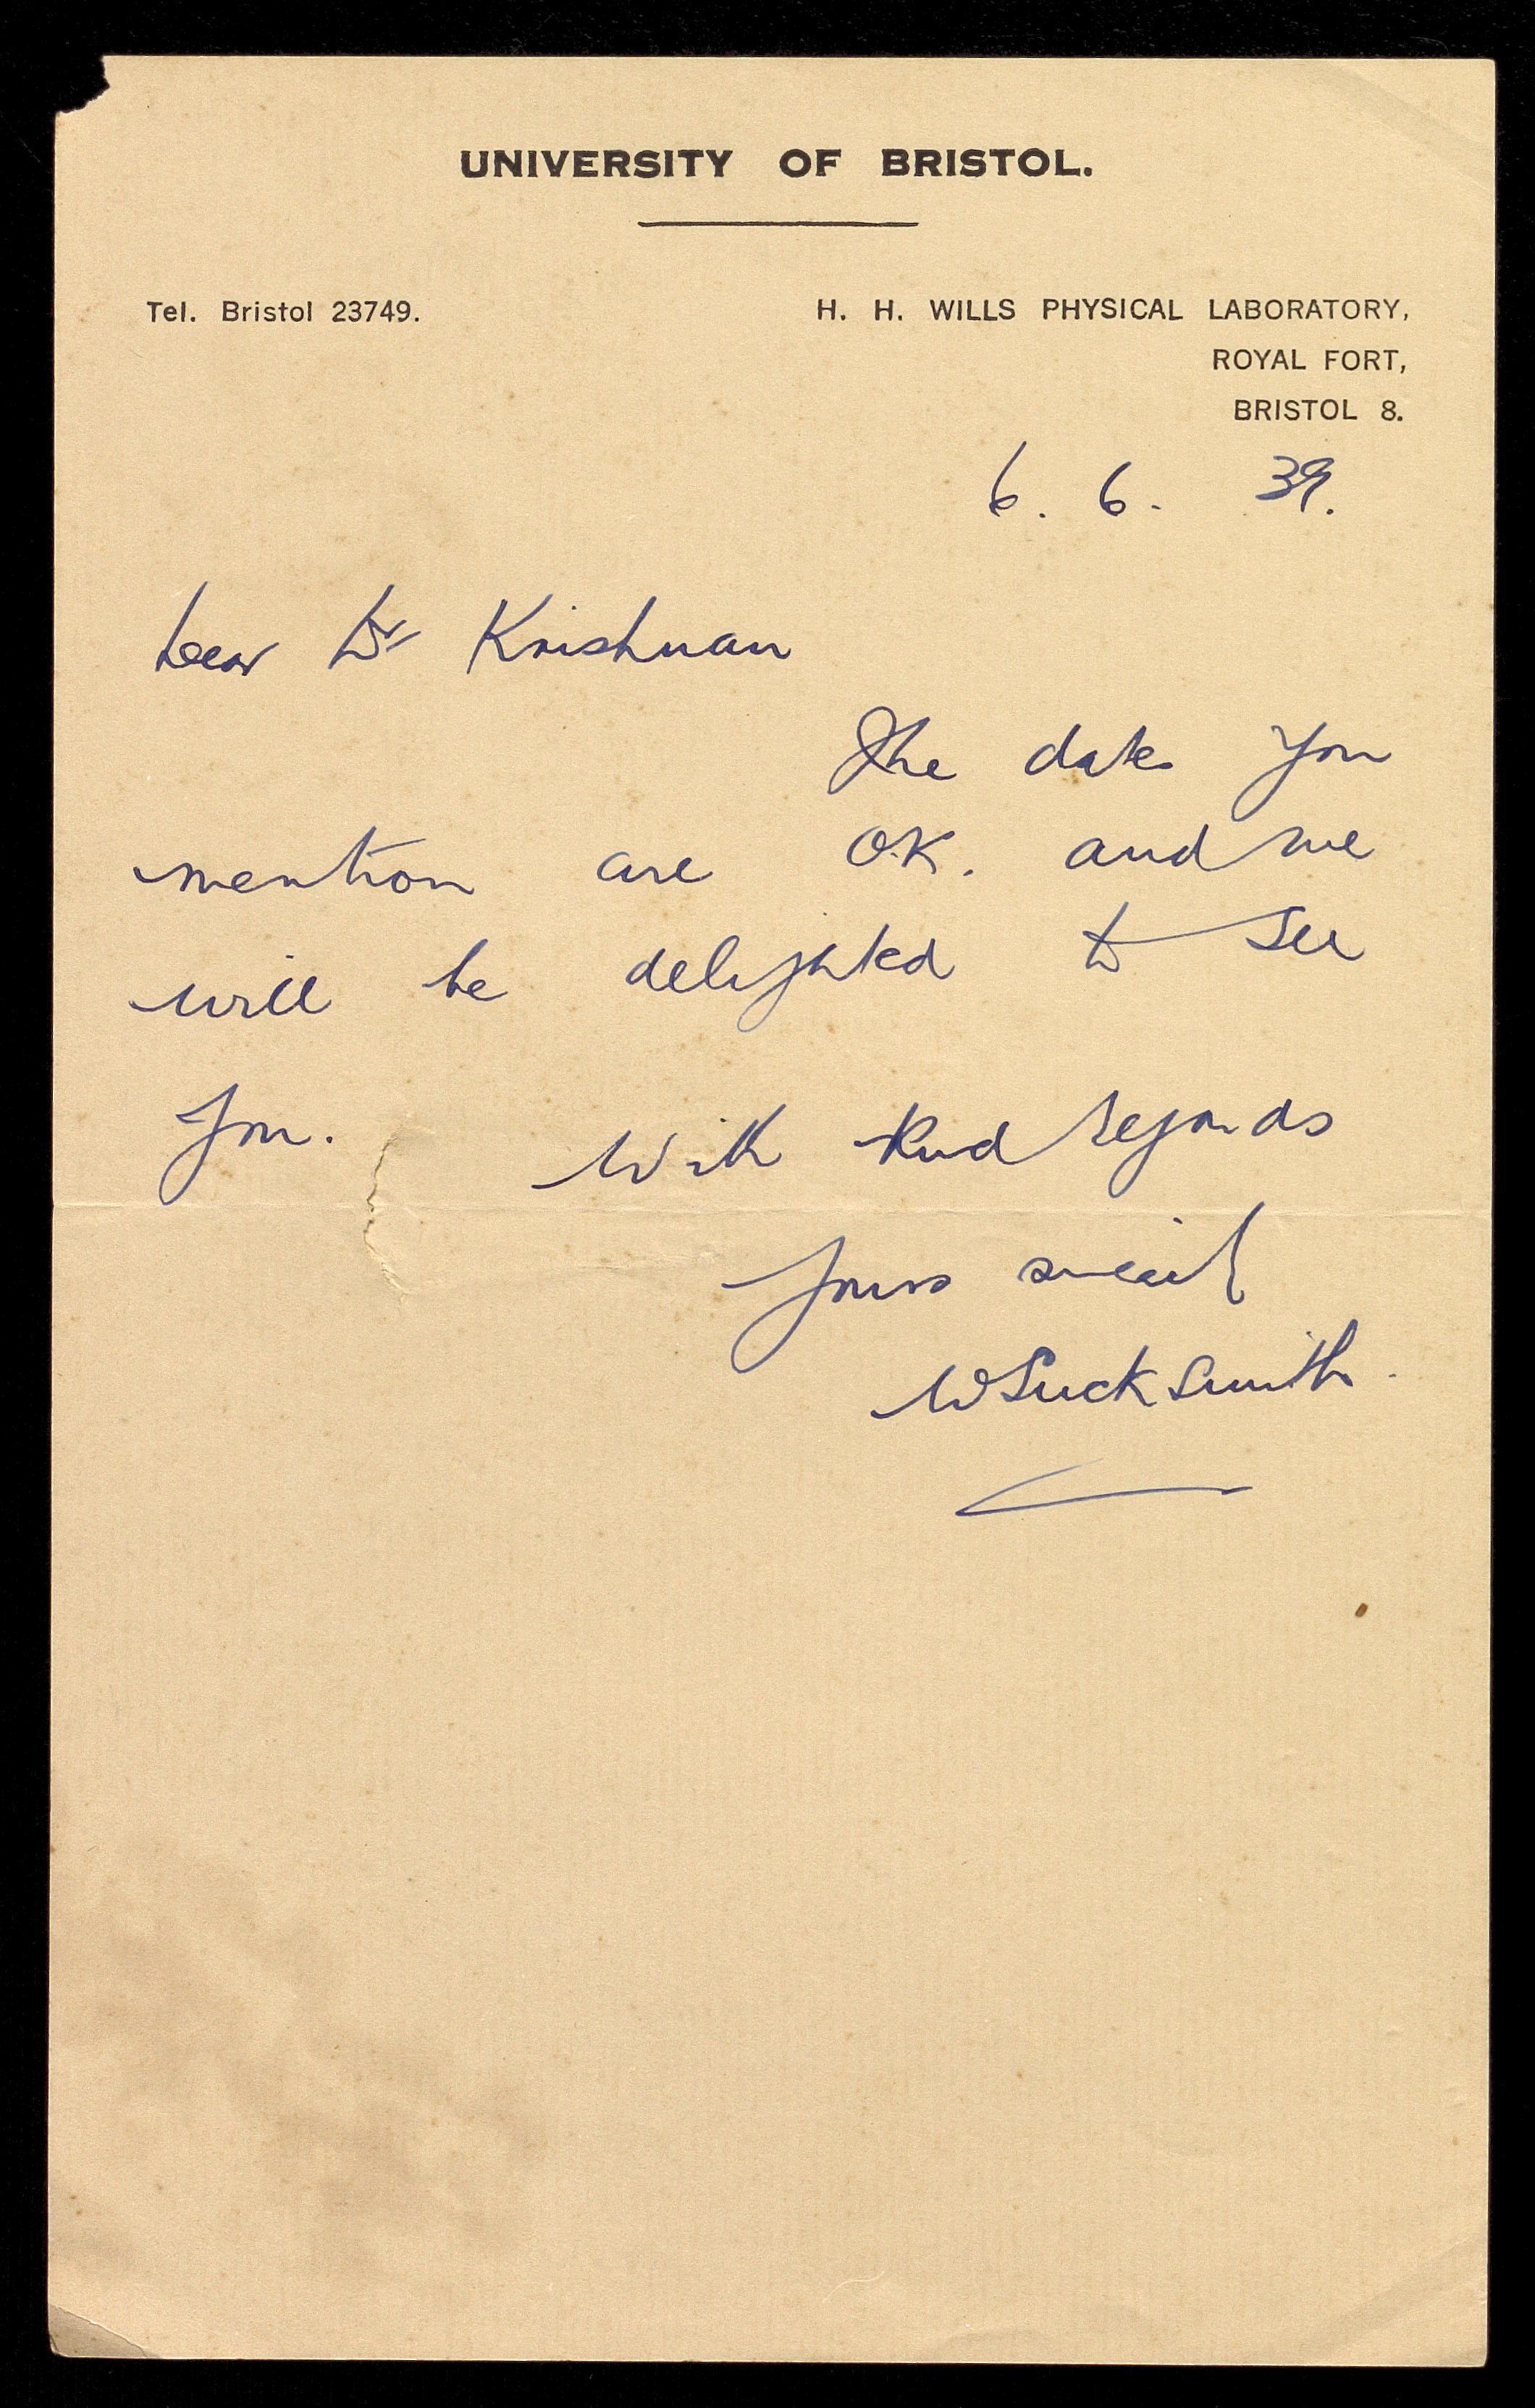 UNIVERSITY OF BRISTOL.
Tel. Bristol 23749.
H. H. WILLS PHYSICAL LABORATORY,
ROYAL FORT,
BRISTOL 8.
6. 6. 39.
Dear Dr Krishnan
The dates you
mention are O.K. and we
will be delighted to see
you.
With kind regards
Yours sincerely
W Sucksmith.